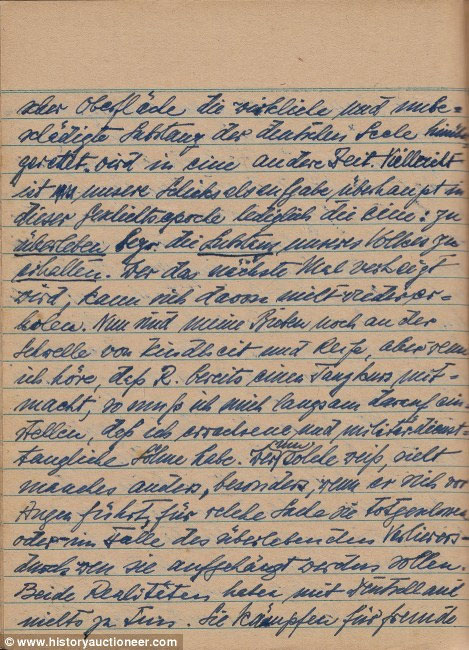 aber Oberfläche die wirkliche und unbe-
schädigte Substanz der deutschen Seele hinüber
gerettet wird in eine andere Zeit. Vielleicht
ist unsere Schicksalsaufgabe überhaupt in
dieser Geschichtsepoche lediglich die eine: zu
überleben bezw. die Substanz unseres Volkes zu
erhalten. Wer das nächste Mal verheizt
wird, kann sich davon nicht wieder er-
holen. Nun sind meine Buben noch an der
Schwelle von Kindheit und Reife, aber wenn
ich höre, daß R. bereits einen Tanzkurs mit-
macht, so muß ich mich langsam darauf ein
stellen, daß ich erwachsene und militärdienst
taugliche Söhne habe. Wer nun solche hat, sieht
manches anders, besonders, wenn er sich vor
Augen führt, für welche Sache sie totgeschossen
oder im Falle des überlebenden Verlierers
durch wen sie aufgehängt werden sollen.
Beide Realitäten haben mit Deutschland
nichts zu tun. Sie kämpfen für fremde
www.historyauctioneer.com